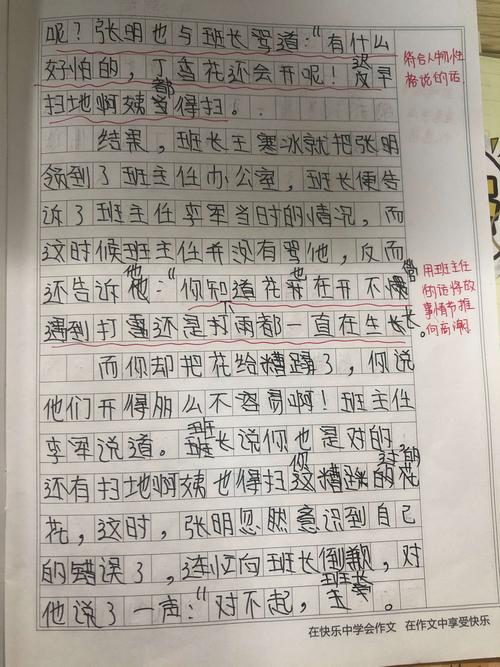 呢？张明也与班长骂道："有什么
好怕的，丁香花还会开呢！反早
扫地啊姨都得扫。
符合人物性
格说的话
结果，班长王寒冰就把张明
领到了班主任办公室，班长便告
诉了班主任李军当时的情况，而
这时候班主任并没有骂他，反而
还告诉他："你知道花也在开不
遇到打雷还是打雨都一直在生长
用班主任
的话将故
事情节推
向高潮
而你却把花给糟蹋了，你说
他们开得那么不容易啊！班主任
李军说道。班长说你也是对的，
还有扫地啊姨也得扫你糟蹋的花
花，这时，张明忽然意识到自己
的错误了，连忙向班长倒歉，对
他说了一声："对不起，班长。
在快乐中学会作文 在作文中享受快乐